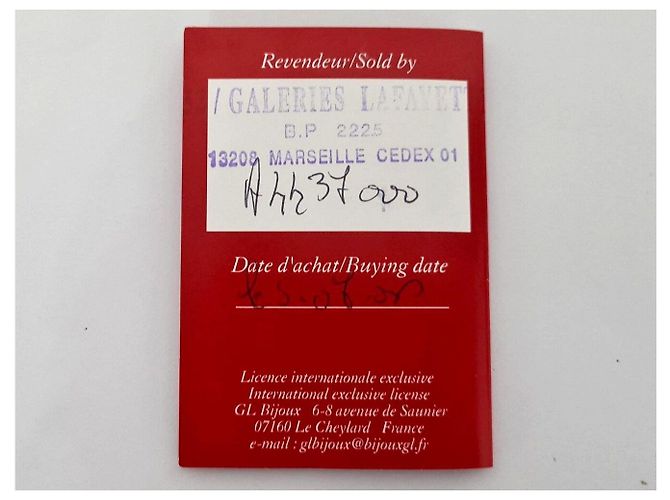 Revendeur/Sold by
GALERIES LAFAYET
B.P 2225
13208 MARSEILLE CEDEX 01
A4437000
Date d'achat/Buying date
Licence internationale exclusive
International exclusive license
GL Bijoux 6-8 avenue de Saunier
07160 Le Cheylard France
e-mail : glbijoux@bijouxgl.fr